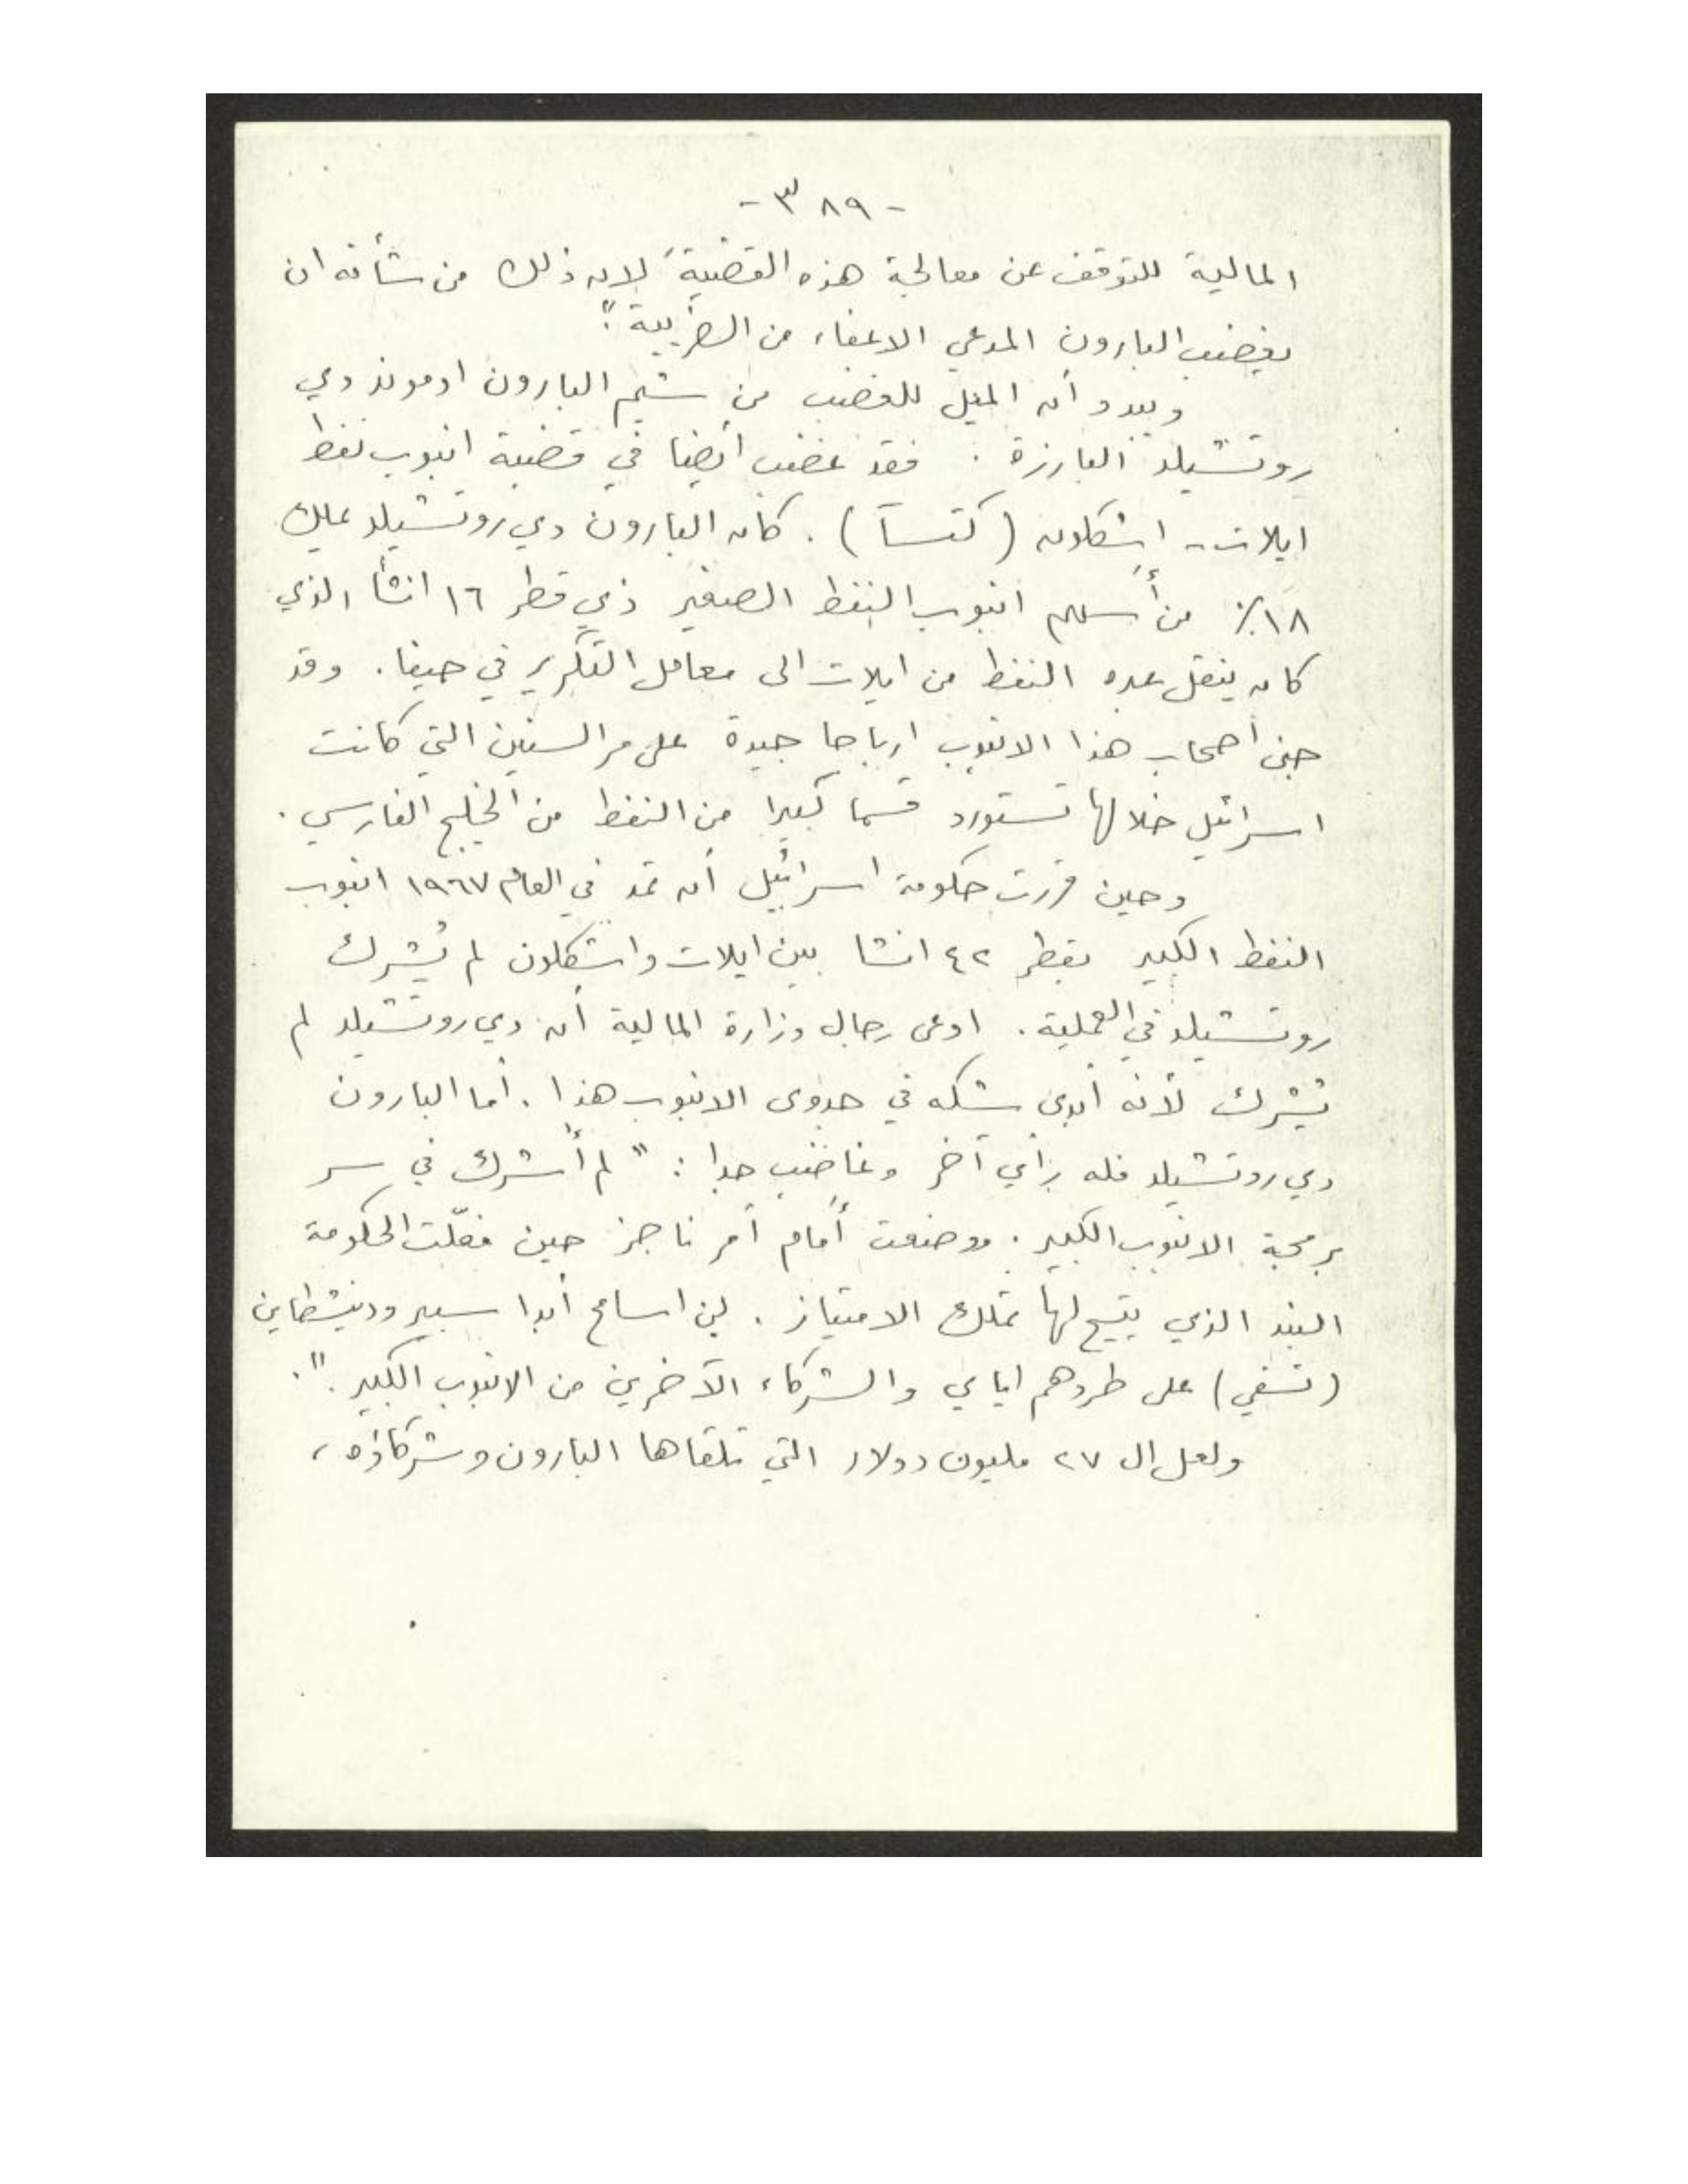 - ٣٨٩ -
المالية للتوقف عن معالجة هذه القضية "لان ذلك من شأنه ان
يغضب البارون المدعي الاعفاء من الضريبة".
ويبدو أن الميل للغضب من شيم البارون ادموند دي
روتشيلد البارزة. فقد غضب أيضا في قضية انبوب نفط
ايلات - اشكلون (كتسآ). كان البارون دي روتشيلد يملك
١٨٪ من أسهم انبوب النفط الصغير ذي قطر ١٦ انشأ الذي
كان ينقل عبره النفط من ايلات الى معامل التكرير في حيفا. وقد
جنى أصحاب هذا الانبوب ارباحا جيدة على مر السنين التي كانت
اسرائيل خلالها تستورد قسما كبيرا من النفط من الخليج الفارسي.
وحين قررت حكومة اسرائيل أن تمد في العام ١٩٦٧ انبوب
النفط الكبير بقطر ٤٢ انشا بين ايلات واشكلون لم يُشرك
روتشيلد في العملية. ادعى رجال وزارة المالية أن دي روتشيلد لم
يُشرك لأنه أبدى شكه في جدوى الانبوب هذا. أما البارون
دي روتشيلد فله رأي آخر وغاضب جدا: "لم أُشرك في سر
برمجة الانبوب الكبير. ووضعت أمام أمر ناجز حين فعّلت الحكومة
البند الذي يتيح لها تملك الامتياز. لن اسامح أبدا سبير ودينشطاين
(تسفي) على طردهم اياي والشركاء الآخرين من الانبوب الكبير".
ولعل ال ٢٧ مليون دولار التي تلقاها البارون وشركاؤه،